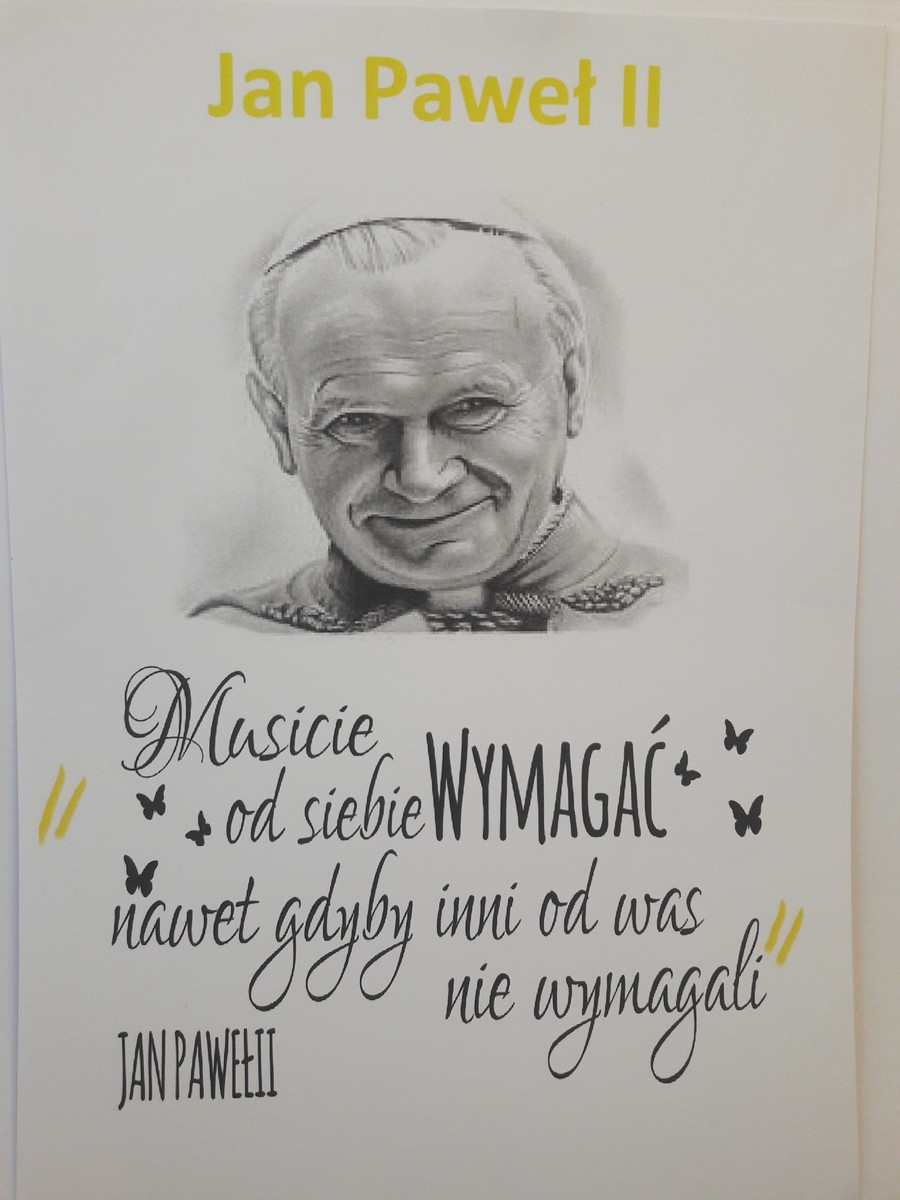 Jan Paweł II
Musicie
" od siebie WYMAGAĆ
nawet gdyby inni od was
nie wymagali "
JAN PAWEŁ II